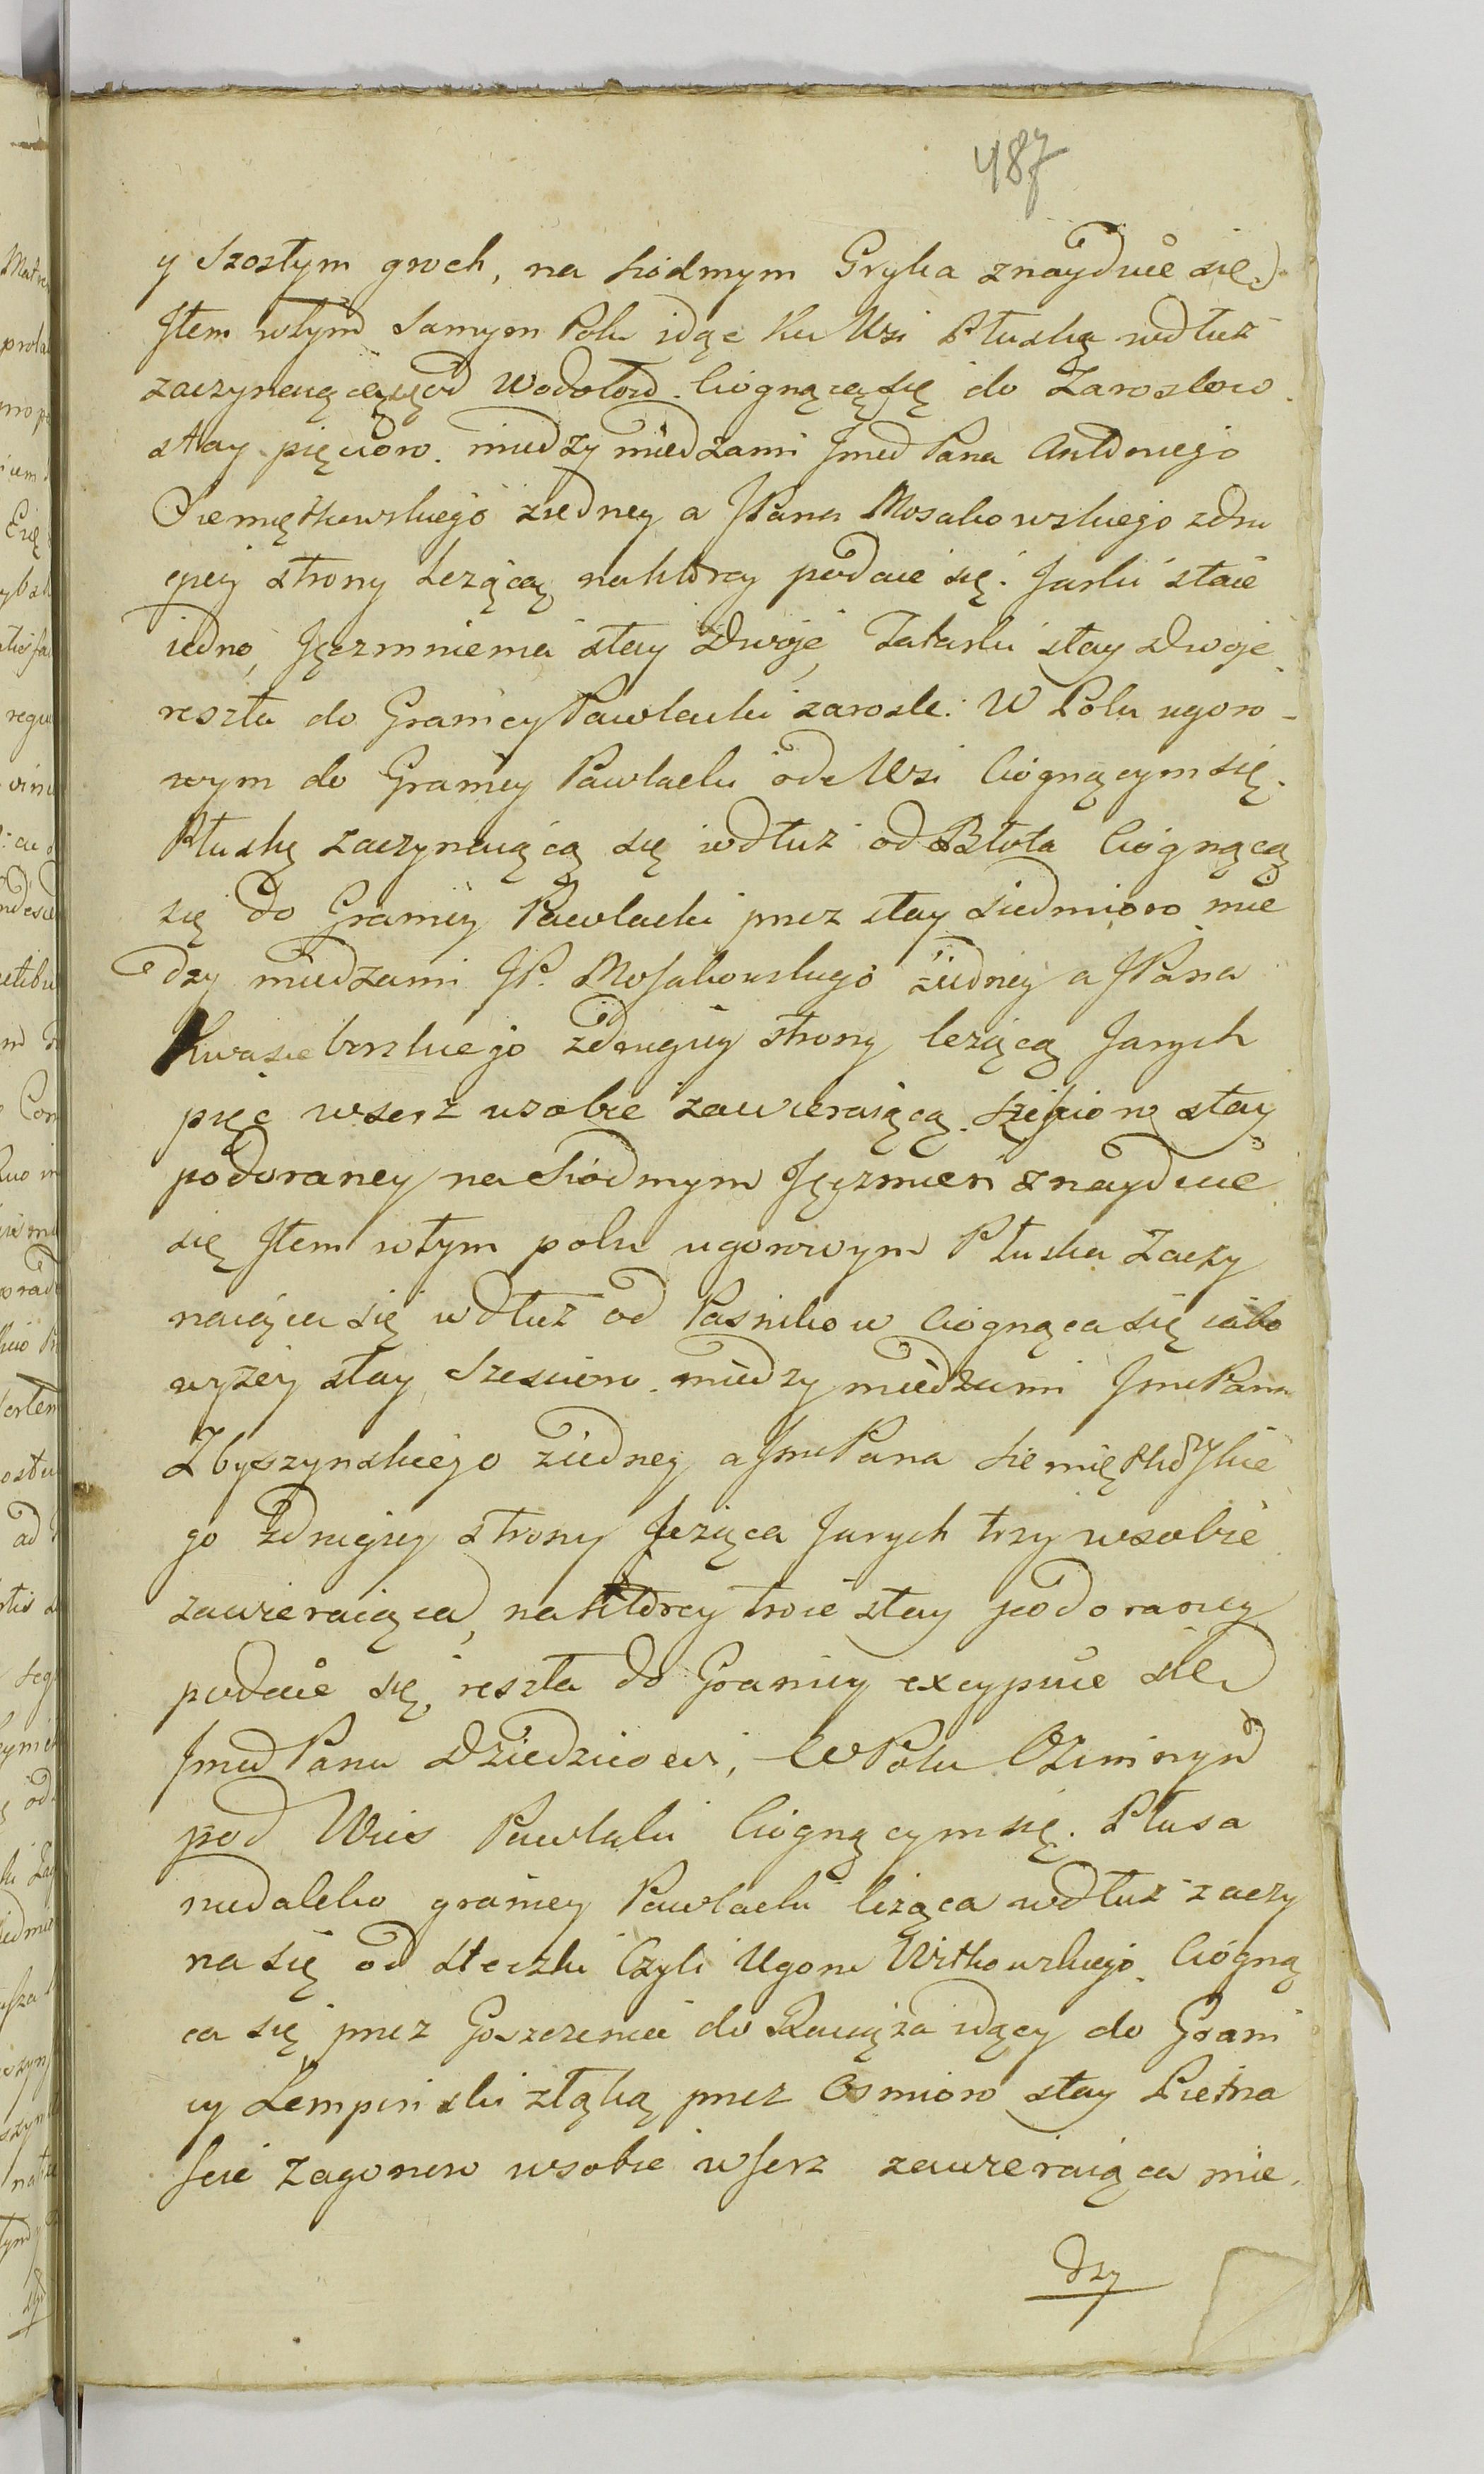 487
y Szostym groch, na siodmym Gryka znayduie się
Jtem wtym samym Polu idąc ku Wsi Płuskę wdłuż
zaczynaiącą się od Wodołow. Ciągnącą się do Zaroslow
stay pięcioro. między miedzami Jmci Pana Antoniego
Siemiętkowskiego ziedney a JPana Mosakowskiego zdru
giey strony Lezącą, naktorey podaie się. Jarki staie
iedno, Jęczmniema stay dwoje, Tatarki stay dwoje
reszta do Granicy Pawlacki zarosle. W Polu ugoro-
wym do Granicy Pawlacki ode Wsi Ciągnącym się.
Płuskę zaczynaiącą się wdłuż od Błota Ciągnącą
się do Granicy Pawlacki przez stay siedmioro mie
dzy miedzami JP. Mosakowskiego ziedney a JPana
Kwasieborskiego zdrugiey strony leżącą Jarych
pięc wszerz wsobie zawieraiącą. sześcioro stay
podoraney na Siodmym Jęczmień znayduie
się Jtem wtym polu ugorowym Płuska Zaczy
naiąca się wdłuż od Pasnikow Ciągnąca się iako
wyżey stay Szescioro. między miedzami Jmci Pana
Zbyszynskiego ziedney a Jmci Pana Siemiętkowskie
go zdrugiey strony Jeżąca Jarych trzy wsobie
zawieraiąca, naktorey troie stay podoraney
podaie się, reszta do Granicy excypuie się
Jmci Panu Dziedzicowi, W Polu Oziminym
pod Wies Pawlaki Ciągnącym się. Płusa
niedaleko granicy Pawlacki leżąca wdłuż zaczy
na się od steczki Czyli Ugoru Witkowskiego. Ciągną
ca się przez Gosczeniec do Raciąża idący do Grani
cy Lempinski złąką przez Osmioro stay Pietna
scie Zagonow wsobie wszerz zawieraiąca mie.
dzy